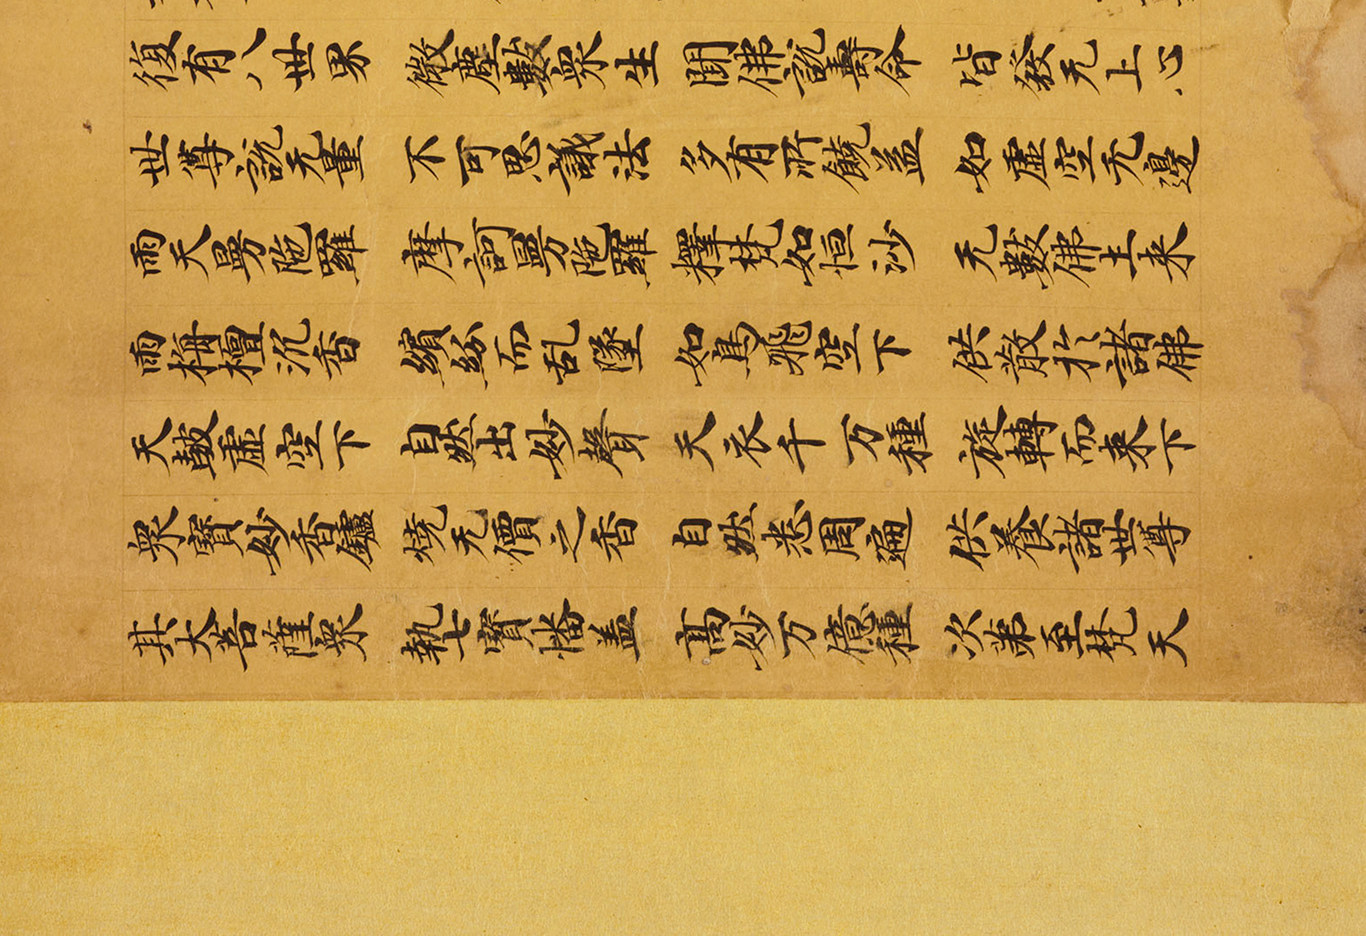 復有八世界 微塵數衆生 聞佛說壽命 皆發无上心
世尊說无量 不可思議法 多有所饒益 如虛空无邊
雨天曼陁羅 摩訶曼陁羅 釋梵如恒沙 无數佛土来
雨栴檀沉香 繽紛而乱墜 如鳥飛空下 供散於諸佛
天鼓虛空下 自然出妙聲 天衣千万種 旋轉而来下
衆寶妙香鑪 燒无價之香 自然悉周遍 供養諸世尊
其大菩薩衆 執七寶幡盖 高妙万億種 次第至梵天